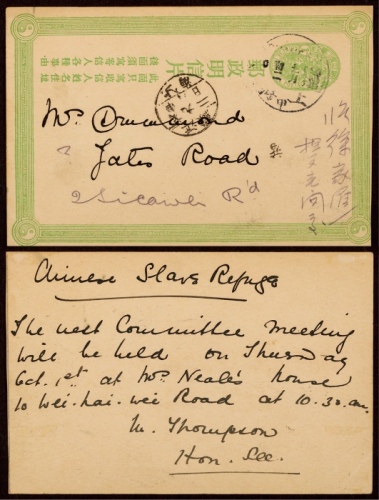 郵政明信片
此面只寫收信人姓名住址
後面寫寄信人各種事由
Mrs Drummond
2 Yates Road
2 Sicawei Rd
徐家匯
Chinese Slave Refuge
The next Committee Meeting
will be held on Thursday
Oct. 1st at Mrs Neale's house
10 Wei-hai-wei Road at 10.30. am.
M. Thompson
Hon. Sec.